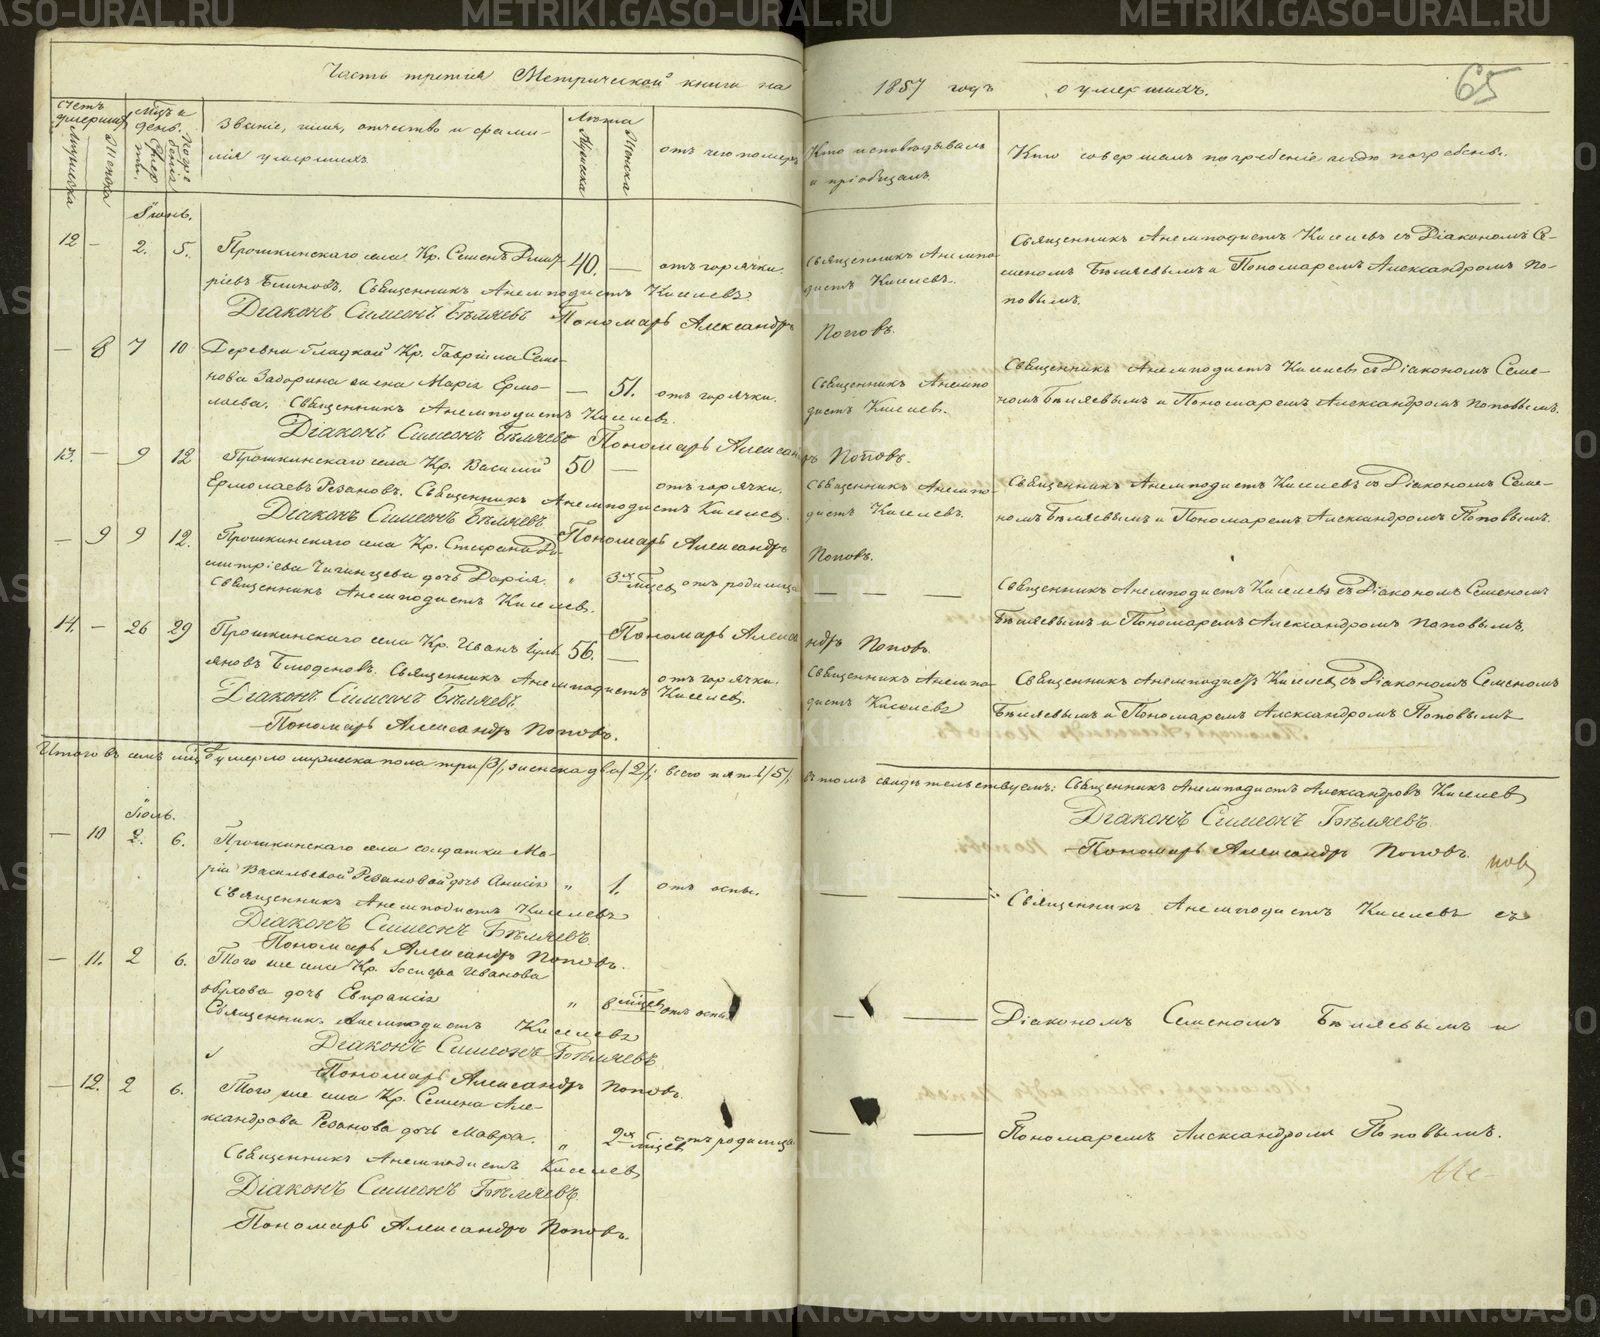 METRIKI.GASO-URAL.RU
Часть третія Метрической книги на 1857 годъ о умершихъ.
65
Счетъ умершихъ
Мужеска
Женска
Мцъ и день.
Смерти.
Погребенія
Званіе, имя, отчество и фамилія умершихъ.
Лѣта
Мужеска
Женска
отъ чего померъ
Кто исповѣдывалъ и пріобщалъ.
Кто совершалъ погребеніе и гдѣ погребены.
Іюнь.
12 — 2. 5. Прошкинскаго села Кр. Семенъ Дмит- 40. — отъ горячки.
ріевъ Блиновъ. Священникъ Анемподистъ Киселевъ
Діаконъ Симеонъ Бѣляевъ Пономарь Александръ Поповъ.
Священникъ Анемпо-
дистъ Киселевъ.
Священникъ Анемподистъ Киселевъ съ Діакономъ Се-
меномъ Бѣляевымъ и Пономаремъ Александромъ По-
повымъ.
— 8 7 10 Деревни Гладкой Кр. Гавріила Семе-
нова Заборина жена Марія Ермо- — 51. отъ горячки.
лаева. Священникъ Анемподистъ Киселевъ.
Діаконъ Симеонъ Бѣляевъ Пономарь Александръ Поповъ.
Священникъ Анемпо-
дистъ Киселевъ.
Священникъ Анемподистъ Киселевъ съ Діакономъ Семе-
номъ Бѣляевымъ и Пономаремъ Александромъ Поповымъ.
13. — 9 12 Прошкинскаго села Кр. Василій 50 —
Ермолаевъ Резановъ. Священникъ Анемподистъ Киселевъ. отъ горячки.
Діаконъ Симеонъ Бѣляевъ
Пономарь Александръ Поповъ.
Священникъ Анемпо-
дистъ Киселевъ.
Священникъ Анемподистъ Киселевъ съ Діакономъ Семе-
номъ Бѣляевымъ и Пономаремъ Александромъ Поповымъ.
— 9 9 12. Прошкинскаго села Кр. Стефана Ди-
митріева дочь Дарія. " 3хъ мцев отъ родимца — — —
Священникъ Анемподистъ Киселев.
Пономарь Александръ Поповъ.
Священникъ Анемподистъ Киселевъ съ Діакономъ Семеномъ
Бѣляевымъ и Пономаремъ Александромъ Поповымъ.
14. — 26 29 Прошкинскаго села Кр. Иванъ Улья- 56. —
яновъ Священникъ Анемподистъ Киселевъ. отъ горячки.
Діаконъ Симеонъ Бѣляевъ.
Пономарь Александръ Поповъ.
Священникъ Анемпо-
дистъ Киселевъ
Священникъ Анемподистъ Киселевъ съ Діакономъ Семеномъ
Бѣляевымъ и Пономаремъ Александромъ Поповымъ
Итого въ семъ мцѣ умерло мужеска пола три /3/, женска два /2/; всего пять /5/, въ томъ свидѣтельствуемъ: Священникъ Анемподистъ Александровъ Киселевъ
Діаконъ Симеонъ Бѣляевъ
Пономарь Александръ Поповъ.
Іюль.
— 10 2. 6. Прошкинскаго села солдатки Ма-
ріи Васильевой Резановой дочь Анисія " 1. отъ оспы.
Священникъ Анемподистъ Киселевъ
Діаконъ Симеонъ Бѣляевъ
Пономарь Александръ Поповъ.
Священникъ Анемподистъ Киселевъ съ
— 11. 2 6. Того же села Кр. Іосифа Иванова
дочь Евпраксія " 8 мцев отъ оспы.
Священникъ Анемподистъ Киселевъ
Діаконъ Симеонъ Бѣляевъ
Пономарь Александръ Поповъ.
Діакономъ Семеномъ Бѣляевымъ и
— 12. 2 6. Того же села Кр. Семена Але-
ксандрова Резанова дочь Мавра. " 2хъ мцев отъ родимца
Священникъ Анемподистъ Киселев
Діаконъ Симеонъ Бѣляевъ.
Пономарь Александръ Поповъ.
Пономаремъ Александромъ Поповымъ.